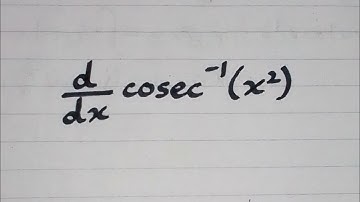 d/dx cosec⁻¹(x²)